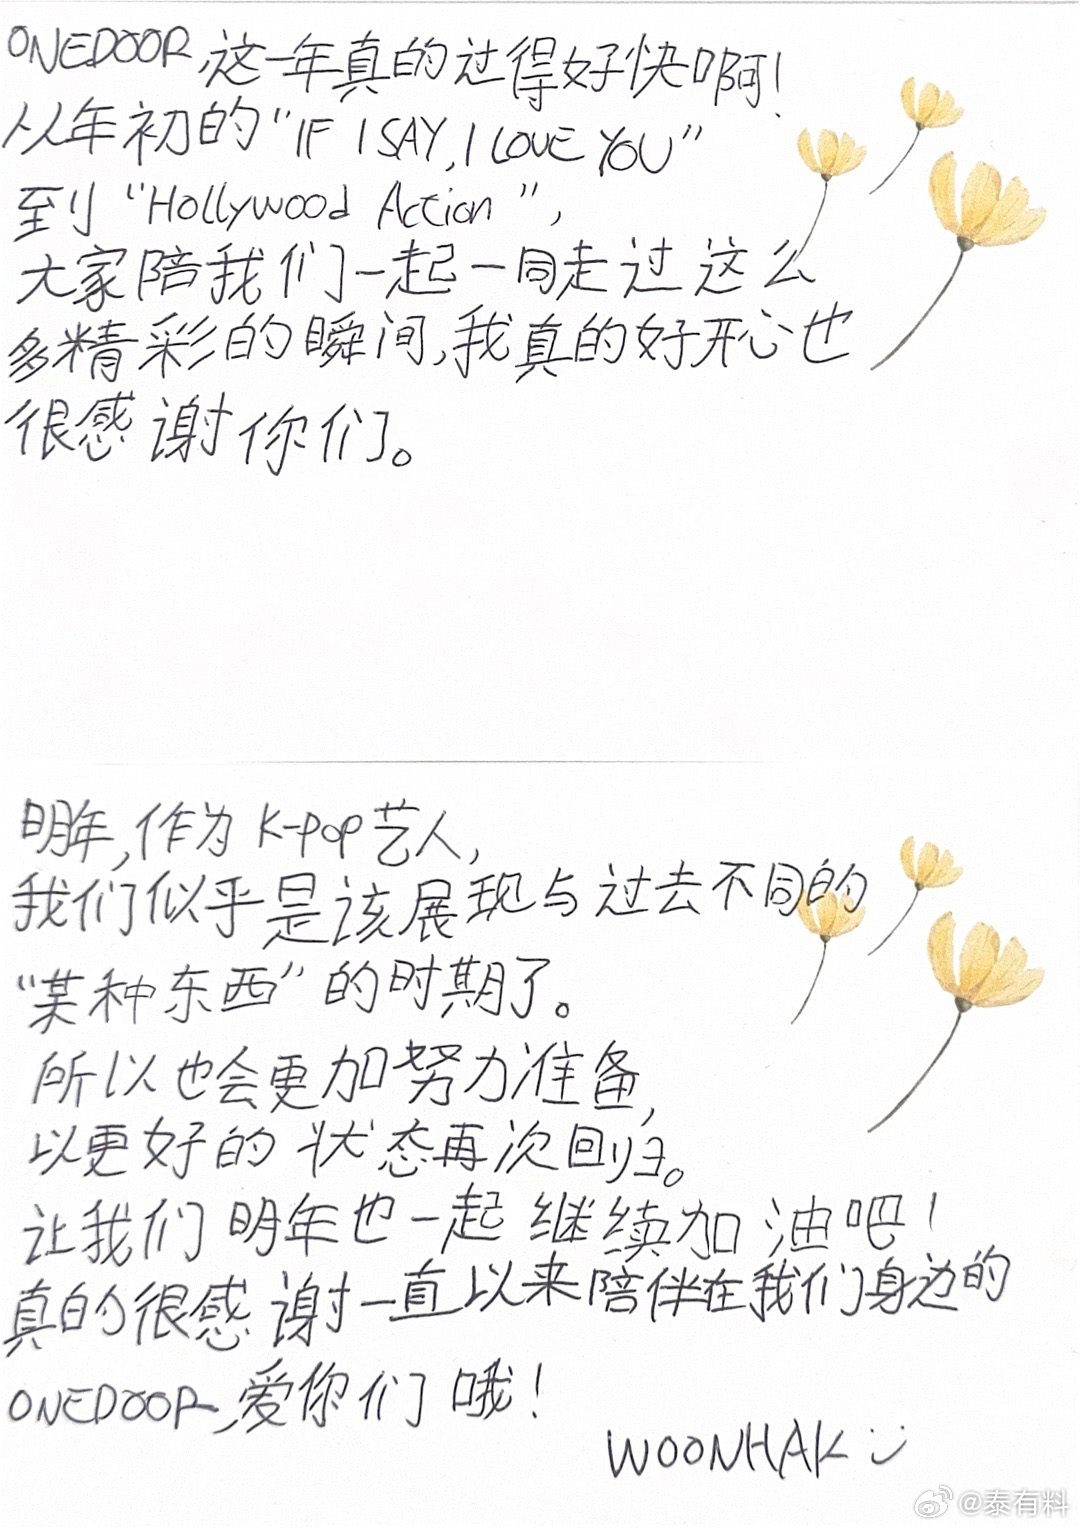 ONEDOOR,这一年真的过得好快啊!
从年初的"IF I SAY, I LOVE YOU"
到"Hollywood Action",
大家陪我们一起一同走过这么
多精彩的瞬间,我真的好开心也
很感谢你们。
明年,作为K-pop艺人,
我们似乎是该展现与过去不同的
"某种东西"的时期了。
所以也会更加努力准备,
以更好的状态再次回归。
让我们明年也一起继续加油吧!
真的很感谢一直以来陪伴在我们身边的
ONEDOOR,爱你们哦!
WOONHAK
@泰有料